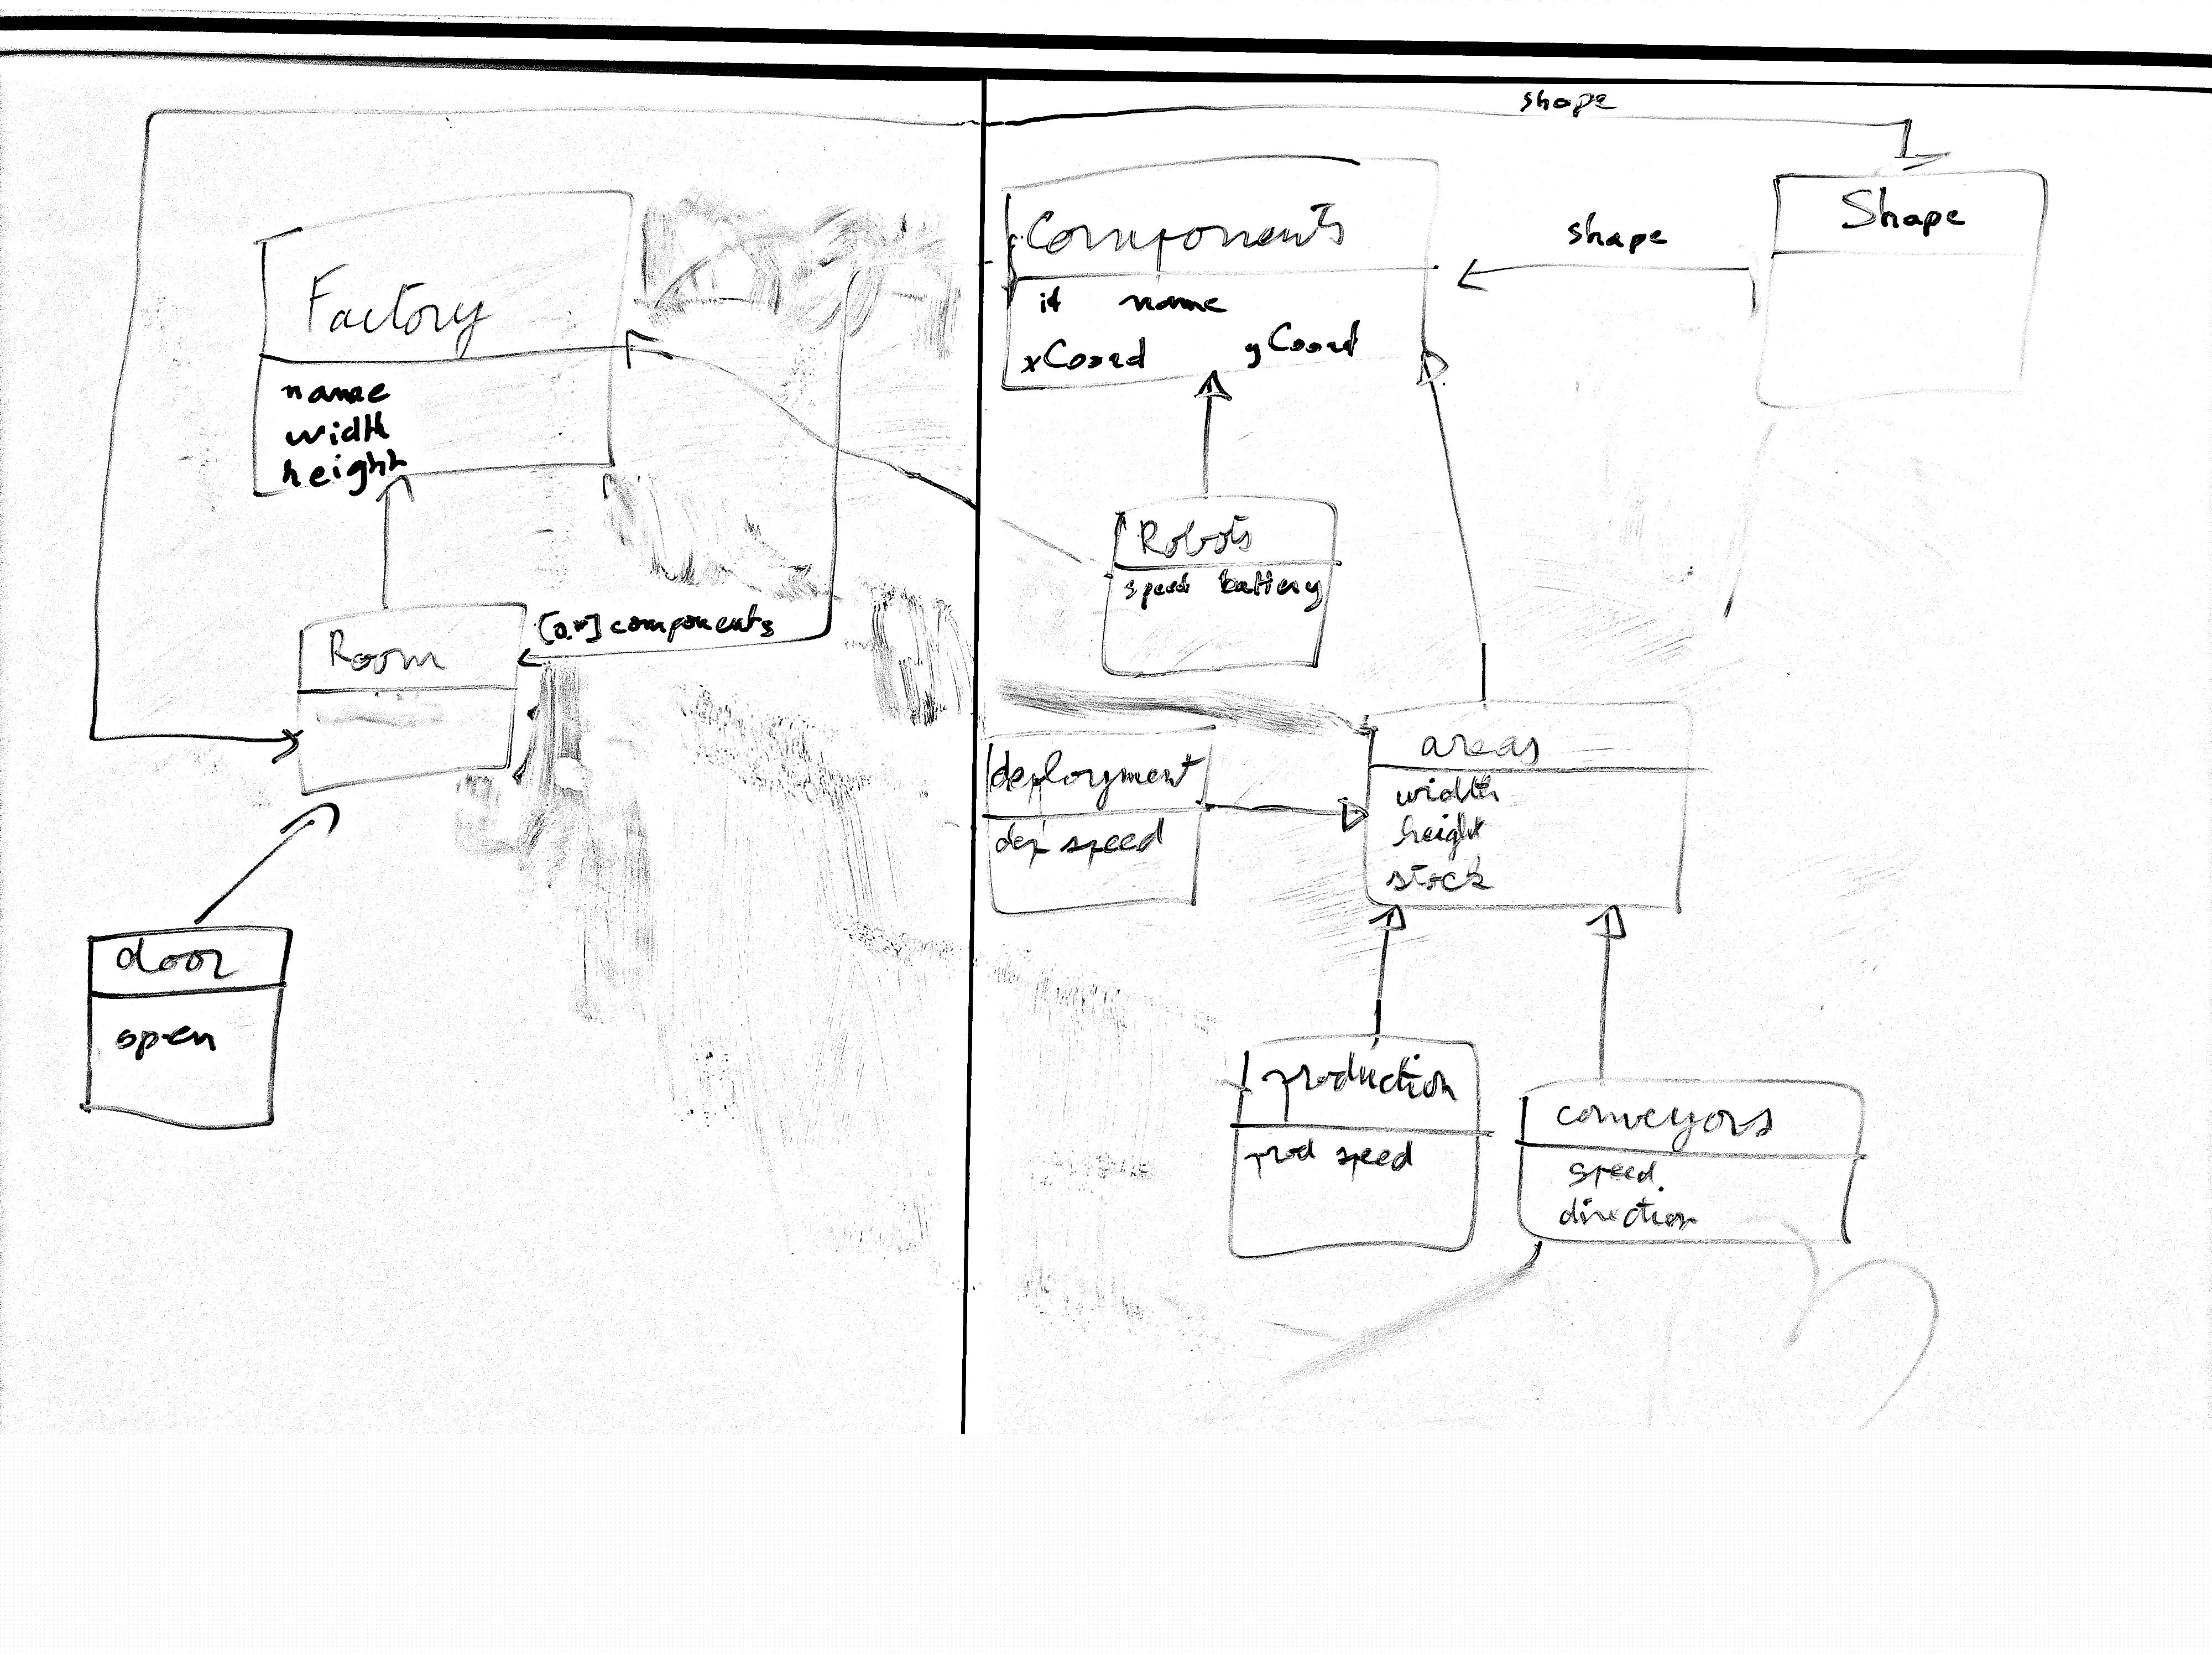 shape
Factory
name
width
height
Room
[0.*] components
door
open
Components
id name
xCoord yCoord
shape
Shape
Robots
speed battery
deployment
dep speed
areas
width
height
stock
production
prod speed
conveyors
speed.
direction